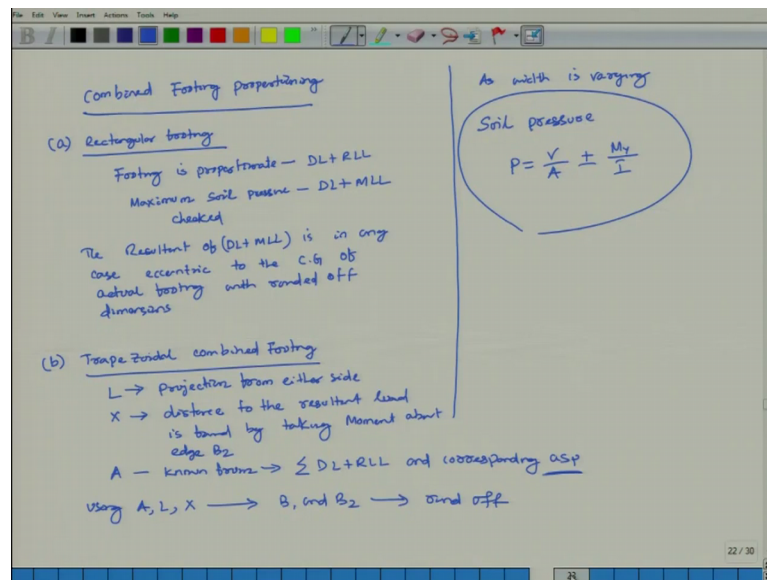 File Edit View Insert Actions Tools Help
B I
Combined Footing proportioning
(a) Rectangular footing
Footing is proportionate - DL + RLL
Maximum soil pressure - DL + MLL
checked
The Resultant of (DL + MLL) is in any
case eccentric to the C.G of
actual footing with rounded off
dimensions
(b) Trapezoidal combined Footing
L → projection from either side
X → distance to the resultant load
is found by taking Moment about
edge B2
A - known from → Σ DL + RLL and corresponding asp
using A, L, X → B, and B2 → round off
As width is varying
Soil pressure
P = V/A ± My/I
22 / 30
22